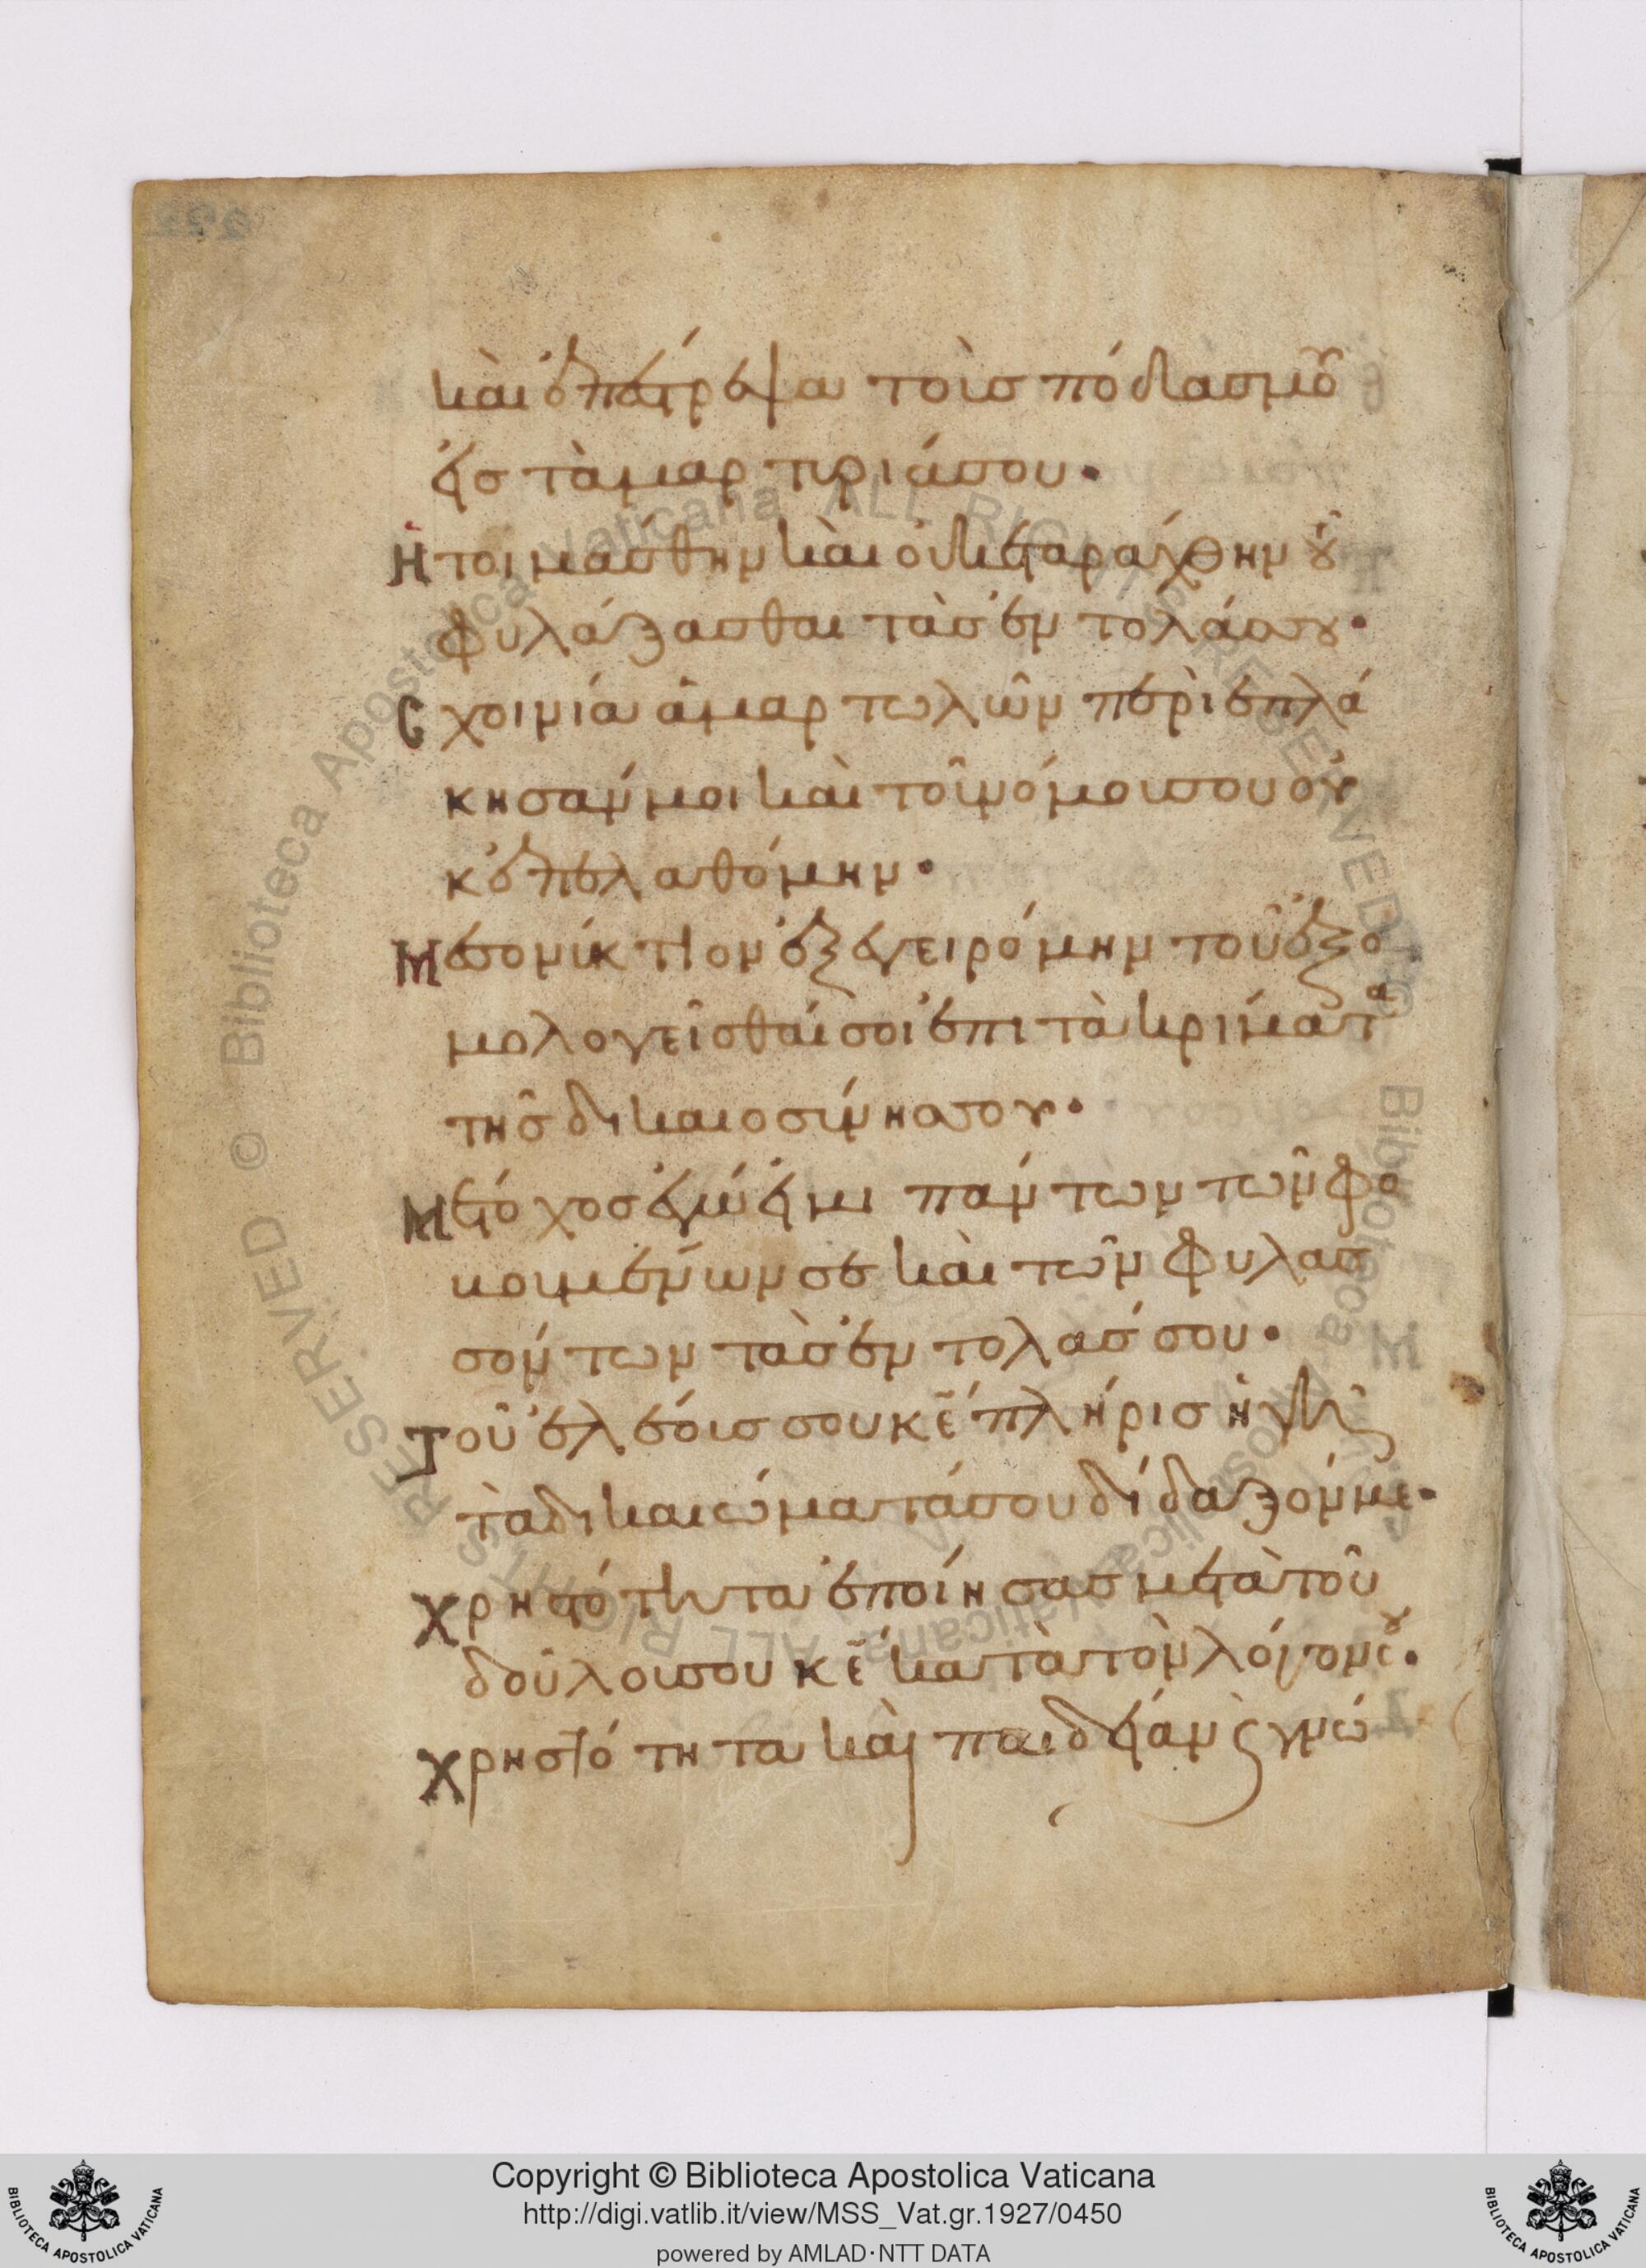 καὶ ἐπέτρεψα τοὺσ πόδασ μου
εἰσ τὰ μαρτυριά σου·
Ητοιμάσθην καὶ οὐκ εταράχθην τοῦ
φυλάξασθαι τὰσ ἐντολάσ σου·
Cχοινία ἁμαρτωλῶν περιεπλά
κησάν μοι καὶ τοῦ νόμου σου οὐ
κ ἐπελαθόμην·
Μεσονύκτιον ἐξεγειρόμην τοῦ ἐξο
μολογεῖσθαί σοι ἐπι τὰ κρίματα
τῆσ δικαιοσύνησ σου·
Μέτοχοσ εγώ εἰμι πάντων τῶν φο
βουμένων σε καὶ τῶν φυλασ
σόντων τὰσ ἐντολάσ σου·
Τοῦ ἐλέουσ σου κε πλήρισ ἡ γῆ
τὰ δικαιώματά σου δίδαξόν με·
Χρηστότητα ἐποίησασ μετὰ τοῦ
δούλου σου κε κατὰ τὸν λόγον σου·
Χρηστότητα καὶ παιδείαν ϛ γνώ
© Biblioteca Apostolica Vaticana ALL RIGHTS RESERVED
© Biblioteca Apostolica Vaticana ALL RIGHTS RESERVED
Copyright © Biblioteca Apostolica Vaticana
http://digi.vatlib.it/view/MSS_Vat.gr.1927/0450
powered by AMLAD·NTT DATA
BIBLIOTECA APOSTOLICA VATICANA
BIBLIOTECA APOSTOLICA VATICANA